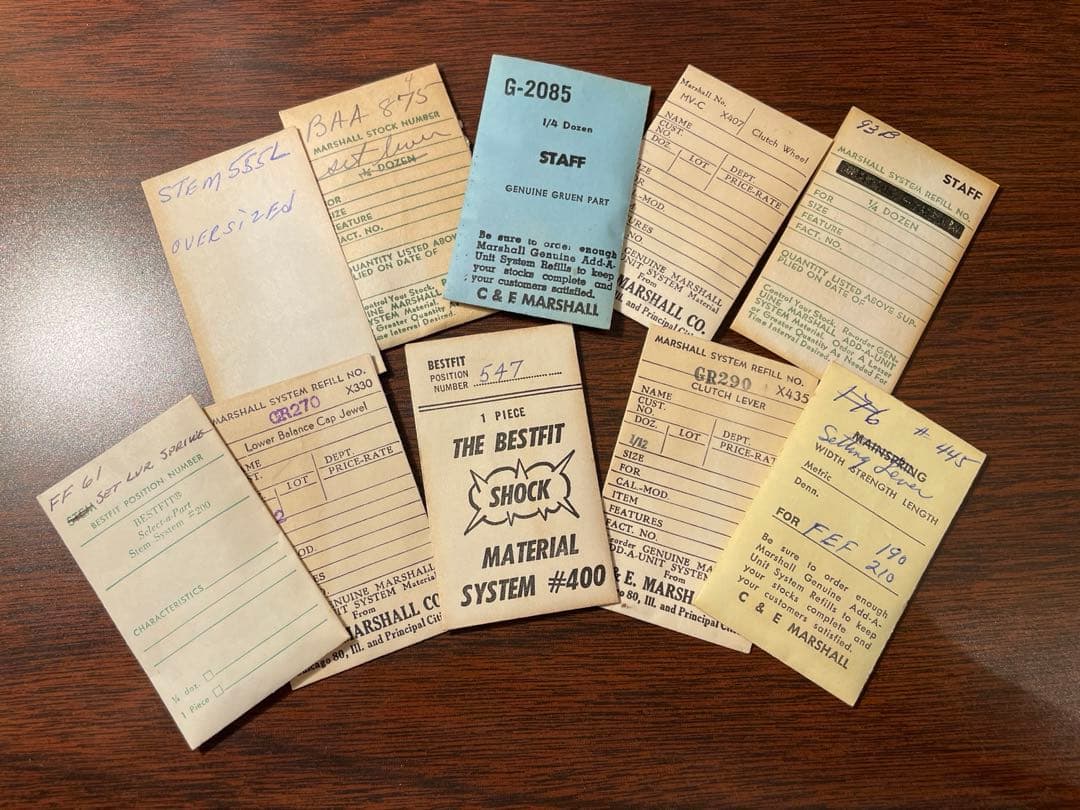 STEM 555L
OVERSIZED
BAA 875
4
MARSHALL STOCK NUMBER
set lever
1/4 DOZEN
FOR
SIZE
FEATURE
FACT. NO.
QUANTITY LISTED ABOVE
PLIED ON DATE OF
Control Your Stock,
UINE MARSHALL
SYSTEM Material.
or Greater Quantity
Time Interval Desired.
G-2085
1/4 Dozen
STAFF
GENUINE GRUEN PART
Be sure to order enough
Marshall Genuine Add-A-
Unit System Refills to keep
your stocks complete and
your customers satisfied.
C & E MARSHALL
Marshall No.
MV-C X407 Clutch Wheel
NAME
CUST.
NO.
DOZ. LOT DEPT.
PRICE-RATE
-MOD.
URES
NO.
GENUINE MARSHALL
UNIT SYSTEM Material
MARSHALL CO.
Ill. and Principal
93B
STAFF
MARSHALL SYSTEM REFILL NO.
1/4 DOZEN
FOR
SIZE
FEATURE
FACT. NO.
QUANTITY LISTED ABOVE SUP-
PLIED ON DATE OF
Control Your Stock, Reorder GEN-
UINE MARSHALL ADD-A-UNIT
SYSTEM Material. Order A Lesser
or Greater Quantity As Needed For
Time Interval Desired.
FF 61
STEM SET LVR SPRING
BESTFIT POSITION NUMBER
BESTFIT®
Select-a-Part
Stem System #200
CHARACTERISTICS
1/4 doz.
1 Piece
MARSHALL SYSTEM REFILL NO.
GR270 X330
Lower Balance Cap Jewel
ME
T.
LOT DEPT.
PRICE-RATE
2
OD.
NUINE MARSHALL
IT SYSTEM Material
From
MARSHALL CO
Chicago 80, Ill. and Principal
BESTFIT
POSITION
NUMBER 547
1 PIECE
THE BESTFIT
SHOCK
MATERIAL
SYSTEM #400
MARSHALL SYSTEM REFILL NO.
GR290 X435
CLUTCH LEVER
NAME
CUST.
NO.
DOZ. LOT DEPT.
1/12 PRICE-RATE
SIZE
FOR
CAL.-MOD.
ITEM
FEATURES
FACT. NO.
eorder GENUINE MARSH
DD-A-UNIT SYSTEM
From
& E. MARSH
80, Ill. and Princ
176 # 445
MAINSPRING
Setting Lever
WIDTH STRENGTH LENGTH
Metric
Denn.
FOR FEF 190
210
Be sure to order enough
Marshall Genuine Add-A-
Unit System Refills to keep
your stocks complete and
your customers satisfied.
C & E MARSHALL